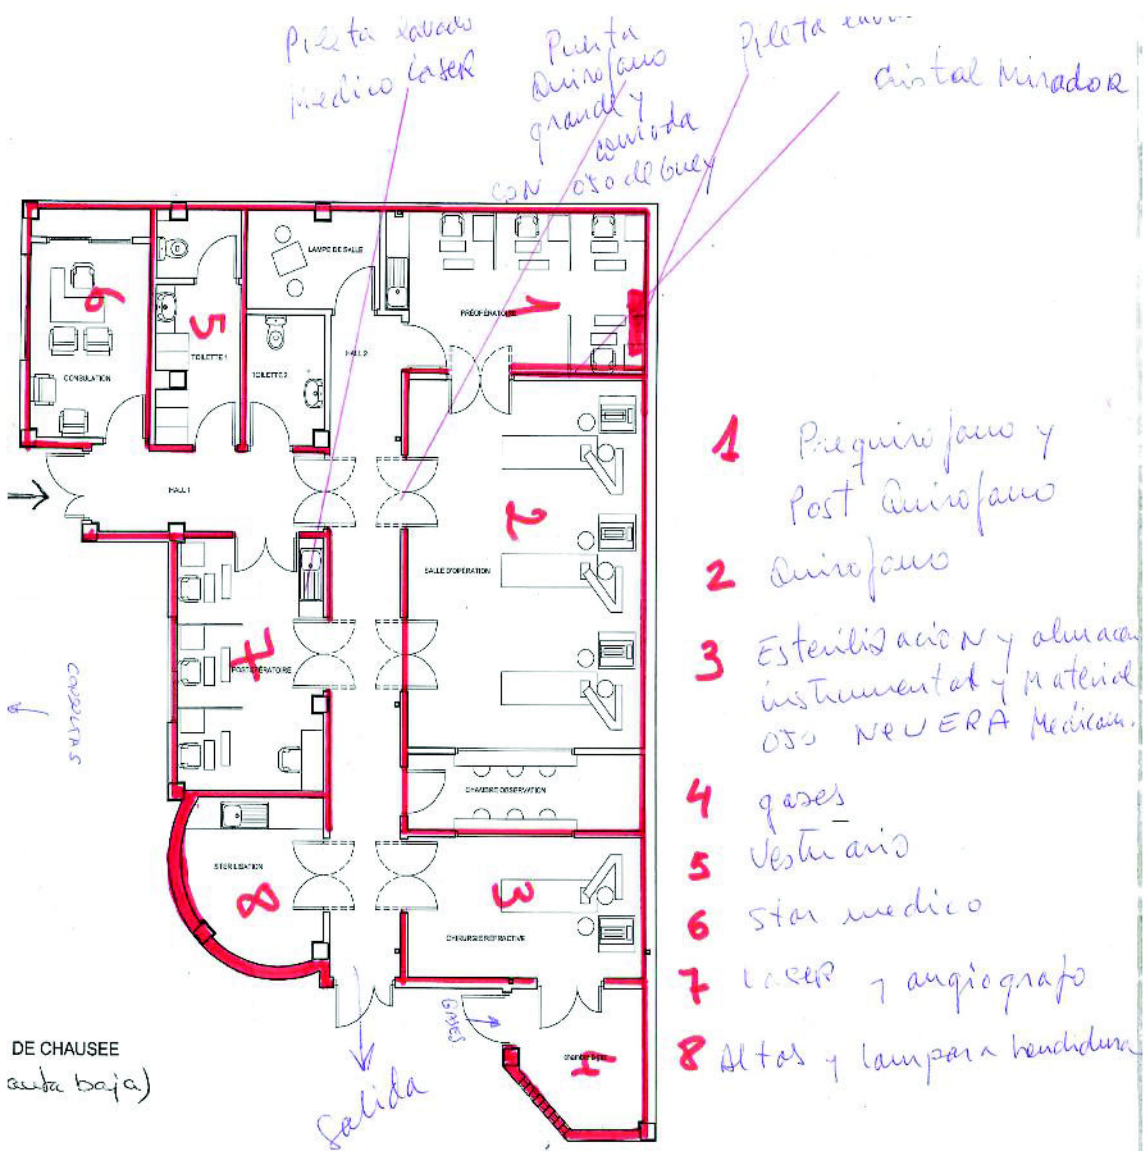 Pileta lavado
Medico laseR
Puerta
Quirofano
grande y
comoda
CON OJO de buey
Pileta
Cristal MiradoR
LAMPE DE SALLE
1
PREOPÉRATOIRE
6
5
TOILETTE 1
TOILETTE 2
HALL 2
CONSULATION
HALL 1
2
SALLE D'OPÉRATION
7
POSTOPÉRATOIRE
CONSULTAS
CHAMBRE OBSERVATION
STERILISATION
8
3
CHIRURGIE REFRACTIVE
GASES
4
Salida
DE CHAUSEE
anta baja)
1 Prequirofano y
Post Quirofano
2 Quirofano
3 EsteriliZacioN y almacen
instrumental y Material
OJO NEVERA Medicam.
4 gases
5 Vestuario
6 Star medico
7 laseR y angiografo
8 Altas y lampara hendidura